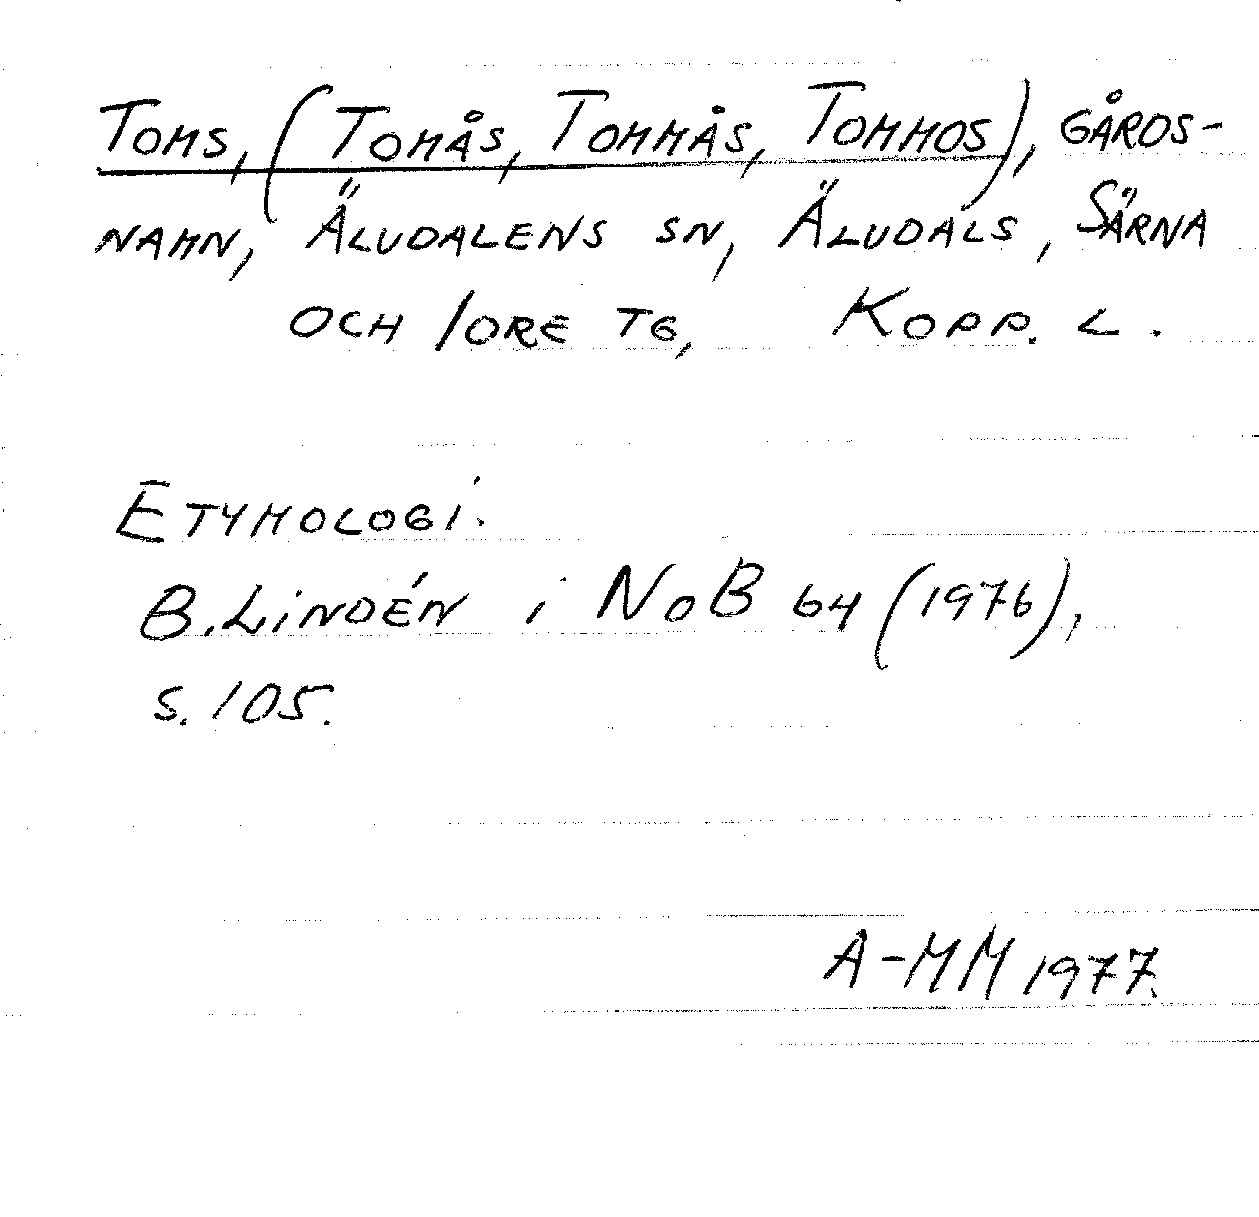 TOMS, (TOMÅS, TOMMÅS, TOMMOS), GÅRDS-
NAMN, ÄLVDALENS SN, ÄLVDALS, SÄRNA
OCH IDRE TG, KOPP. L.
ETYMOLOGI.
B. LINDÉN i NoB 64 (1976),
S. 105.
A-MM 1977.